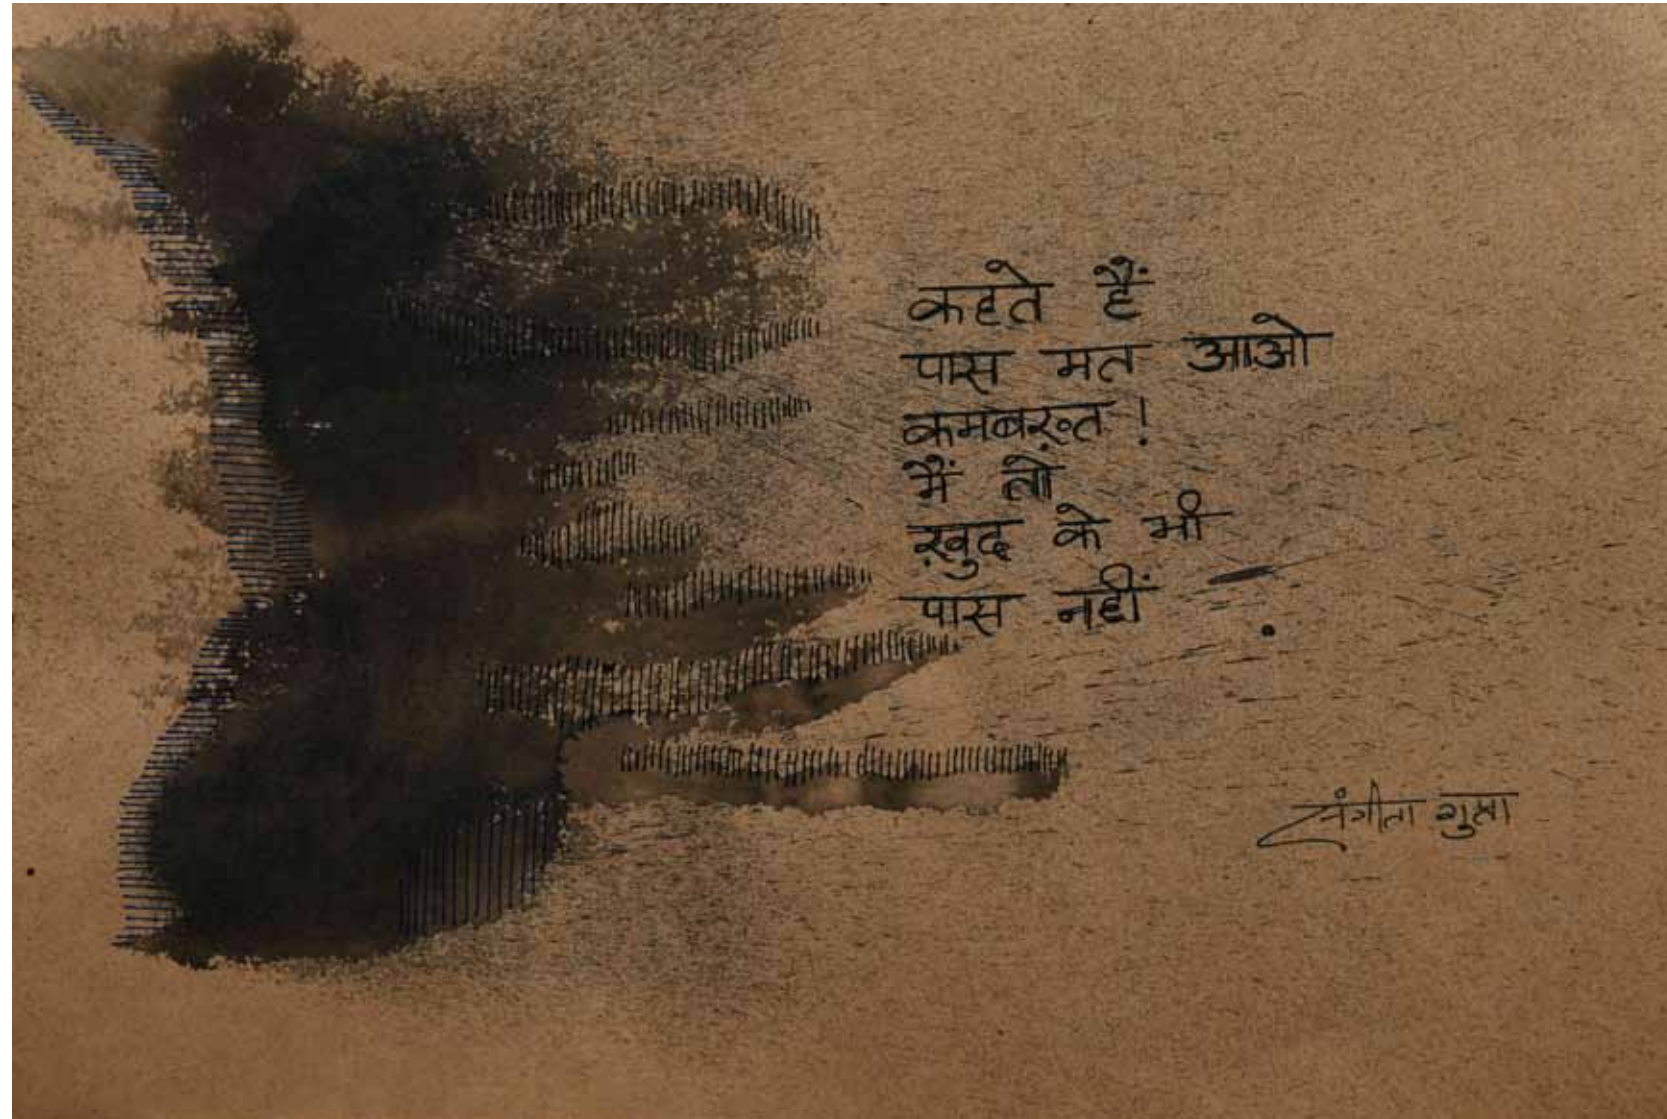 कहते हैं
पास मत आओ
कमबख़्त !
मैं तो
ख़ुद के भी
पास नहीं .
संगीता गुप्ता